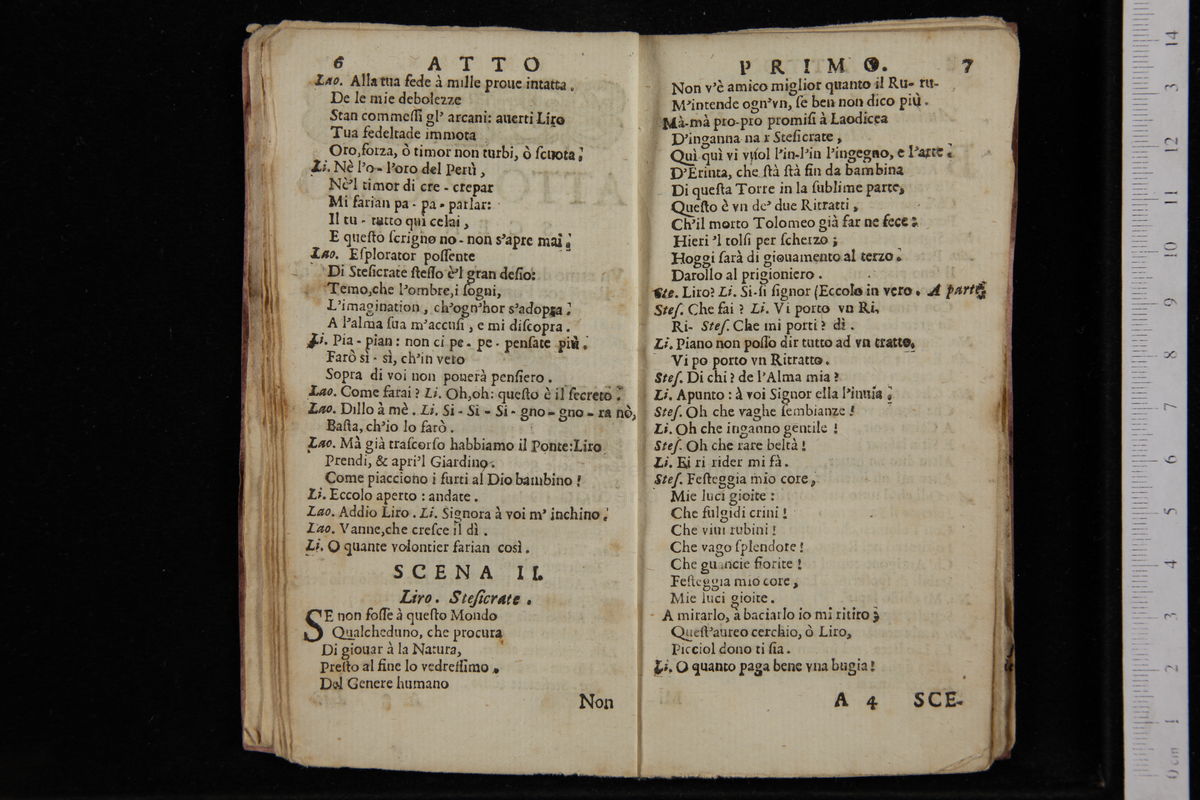 6 ATTO
Lao. Alla tua fede à mille proue intatta.
De le mie debolezze
Stan commeſſi gl' arcani: auerti Liro
Tua fedeltade immota
Oro, forza, ò timor non turbi, ò ſcuota.
Li. Nè l'o- l'oro del Perù,
Nè'l timor di cre - crepar
Mi farian pa - pa - parlar:
Il tu - tutto quì celai,
E queſto ſcrigno no - non s'apre mai.
Lao. Eſplorator poſſente
Di Steſicrate ſteſſo è'l gran deſio:
Temo, che l'ombre, i ſogni,
L'imagination, ch'ogn'hor s'adopra.
A l'alma ſua m'accuſi, e mi diſcopra.
Li. Pia - pian: non ci pe - pe - penſate più.
Farò sì - sì, ch'in vero
Sopra di voi non pouerà penſiero.
Lao. Come farai? Li. Oh, oh: queſto è il ſecreto.
Lao. Dillo à mè. Li. Si - Si - Si - gno - gno - ra nò,
Baſta, ch'io lo farò.
Lao. Mà già traſcorſo habbiamo il Ponte: Liro
Prendi, & apri'l Giardino.
Come piacciono i furti al Dio bambino!
Li. Eccolo aperto: andate.
Lao. Addio Liro. Li. Signora à voi m' inchino.
Lao. Vanne, che creſce il dì.
Li. O quante volontier farian così.
SCENA II.
Liro. Steſicrate.
SE non foſſe à queſto Mondo
Qualcheduno, che procura
Di giouar à la Natura,
Preſto al fine lo vedreſſimo.
Del Genere humano
Non
PRIMO. 7
Non v'è amico miglior quanto il Ru- ru-
M'intende ogn'vn, ſe ben non dico più.
Mà-mà pro-pro promiſi à Laodicea
D'inganna na r Steſicrate,
Quì quì vi vſol l'in-l'in l'ingegno, e l'arte.
D'Erinta, che ſtà ſtà fin da bambina
Di queſta Torre in la ſublime parte,
Queſto è vn de' due Ritratti,
Ch'il morto Tolomeo già far ne fece:
Hieri 'l tolſi per ſcherzo;
Hoggi ſarà di giouamento al terzo.
Darollo al prigioniero.
Ste. Liro? Li. Si-ſi ſignor (Eccolo in vero. A parte
Steſ. Che fai? Li. Vi porto vn Ri,
Ri- Steſ. Che mi porti? dì.
Li. Piano non poſſo dir tutto ad vn tratto,
Vi po porto vn Ritratto.
Steſ. Di chi? de l'Alma mia?
Li. Apunto: à voi Signor ella l'inuia.
Steſ. Oh che vaghe ſembianze!
Li. Oh che inganno gentile!
Steſ. Oh che rare beltà!
Li. Ei ri rider mi fà.
Steſ. Feſteggia mio core,
Mie luci gioite:
Che fulgidi crini!
Che viui rubini!
Che vago ſplendore!
Che guancie fiorite!
Feſteggia mio core,
Mie luci gioite.
A mirarlo, à baciarlo io mi ritiro;
Queſt'aureo cerchio, ò Liro,
Picciol dono ti ſia.
Li. O quanto paga bene vna bugia!
A 4 SCE-